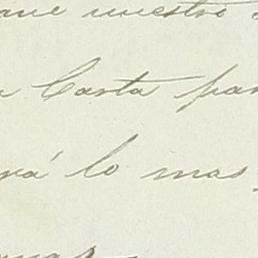 que nuestro
Carta par
rá lo mas